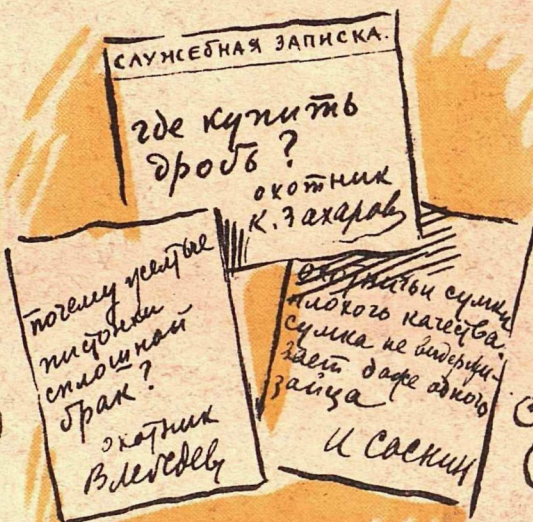 СЛУЖЕБНАЯ ЗАПИСКА.
где купить
дробь?
охотник
К. Захаров
почему желтые
пистонки
сплошной
брак?
охотник
В Лебедев
Охотничьи сумки
плохого качества.
сумка не выдержи-
вает даже одного
зайца
И Соснин